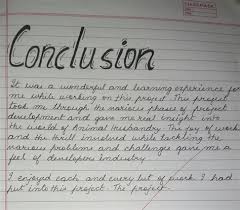 Conclusion
It was a wonderful and learning experience for
me while working on this project. This project
took me through the various phases of project
development and gave me real insight into
the world of Animal Husbandry. The joy of work
and the thrill involved while tackling the
various problems and challenges gave me a
feel of developers industry.
I enjoyed each and every bit of work I had
put into this project. The project